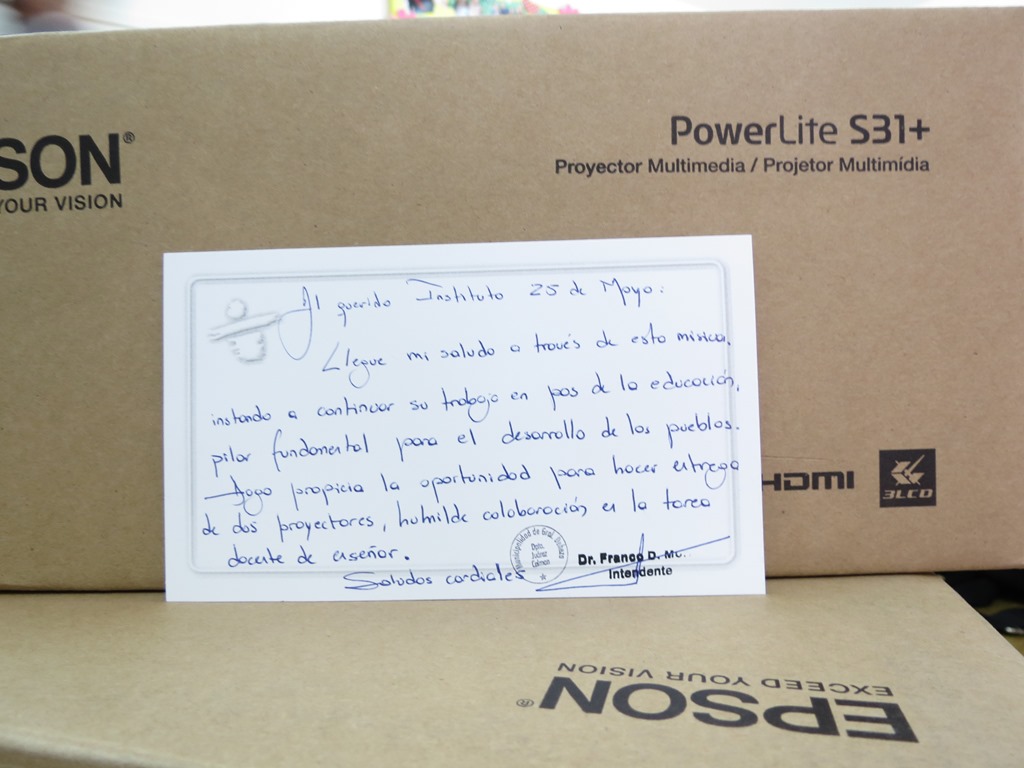 SON®
YOUR VISION
PowerLite S31+
Proyector Multimedia / Projetor Multimídia
Al querido Instituto 25 de Mayo:
Llegue mi saludo a través de esta misiva,
instando a continuar su trabajo en pos de la educación,
pilar fundamental para el desarrollo de los pueblos.
Hago propicia la oportunidad para hacer entrega
de dos proyectores, humilde colaboración en la tarea
docente de enseñar.
Saludos cordiales
Municipalidad de Gral.
Dpto.
Juárez
Celman
Dr. Franco D. Mo
Intendente
HDMI
3LCD
EPSON®
EXCEED YOUR VISION